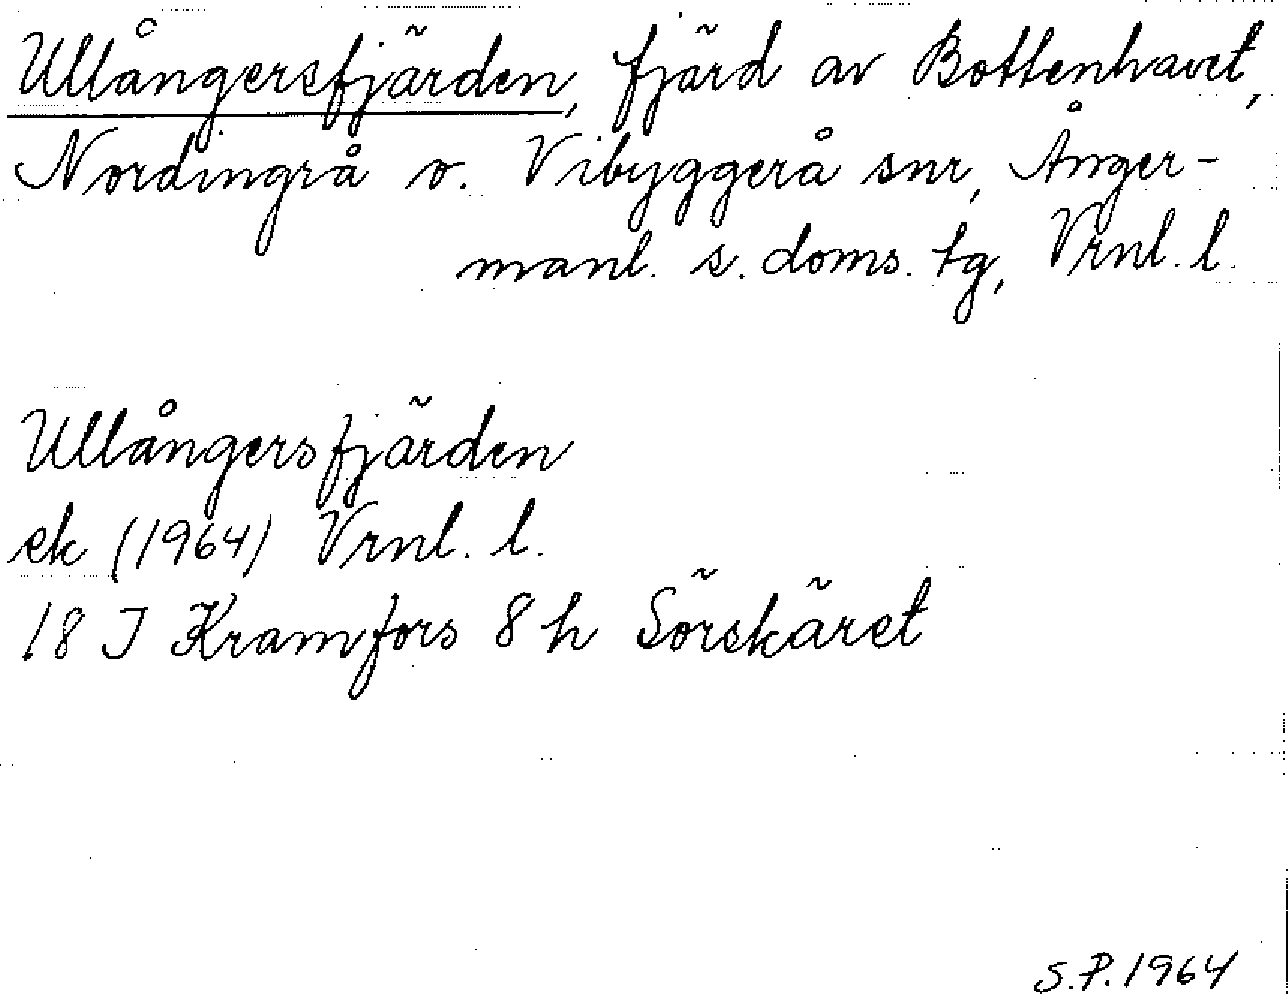 Ullångersfjärden, fjärd av Bottenhavet,
Nordingrå o. Vibyggerå snr, Ånger-
manl. s. doms. tg, Vrnl. l.
Ullångersfjärden
ek (1964) Vrnl. l.
18 J Kramfors 8 h Sörskäret
S.P. 1964